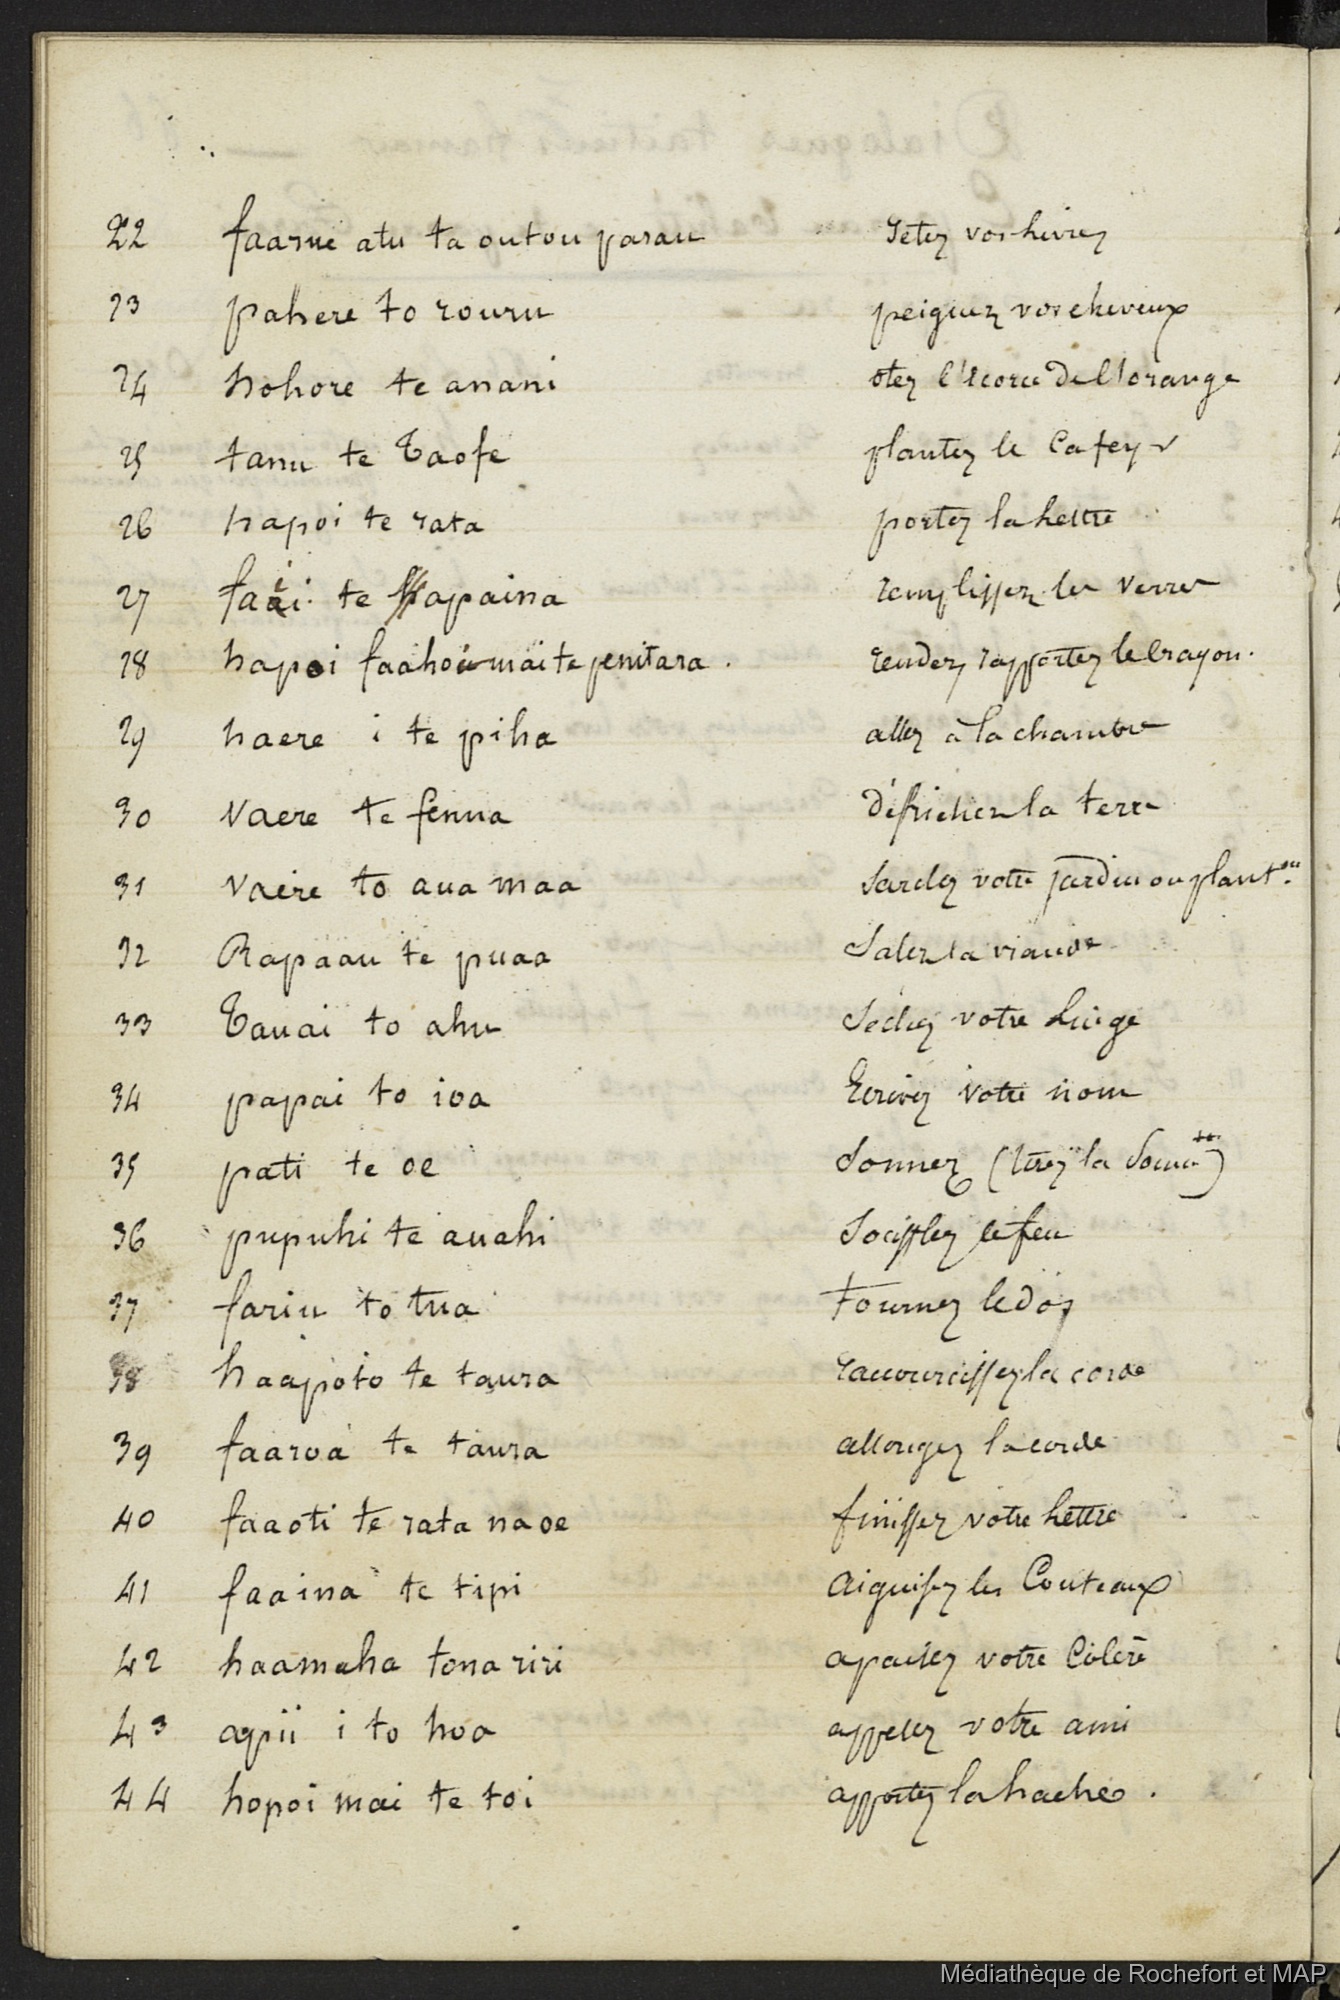 22 faarue atu ta outou parau Jetez vos livres
23 pahere to rouru peignez vos cheveux
24 hohore te anani otez l'écorce de l'orange
25 tanu te Taofe plantez le Cafeyr
26 hapoi te rata portez la lettre
27 faai te hapaina remplissez les verres
28 hapoi faahoi mai te penitara. rendez, rapportez le Crayon.
29 haere i te piha allez à la chambre
30 Vaere te fenua Défrichez la terre
31 Vaere to aua maa Sarclez votre jardin ou plant.on
32 Rapaau te puaa Salez la viande
33 Tauai to ahu Séchez votre linge
34 papai to ioa Ecrivez votre nom
35 pati te oe Sonnez (tirez la Sonnette)
36 pupuhi te auahi Soufflez le feu
37 fariu to tua tournez le dos
38 haapoto te taura raccourcissez la corde
39 faaroa te taura allongez la corde
40 faaoti te rata na oe finissez votre lettre
41 faaina te tipi Aiguisez les Couteaux
42 haamaha tona riri apaisez votre Colère
43 apii i to hoa appellez votre ami
44 hopoi mai te toi apportez la hache.
Médiathèque de Rochefort et MAP